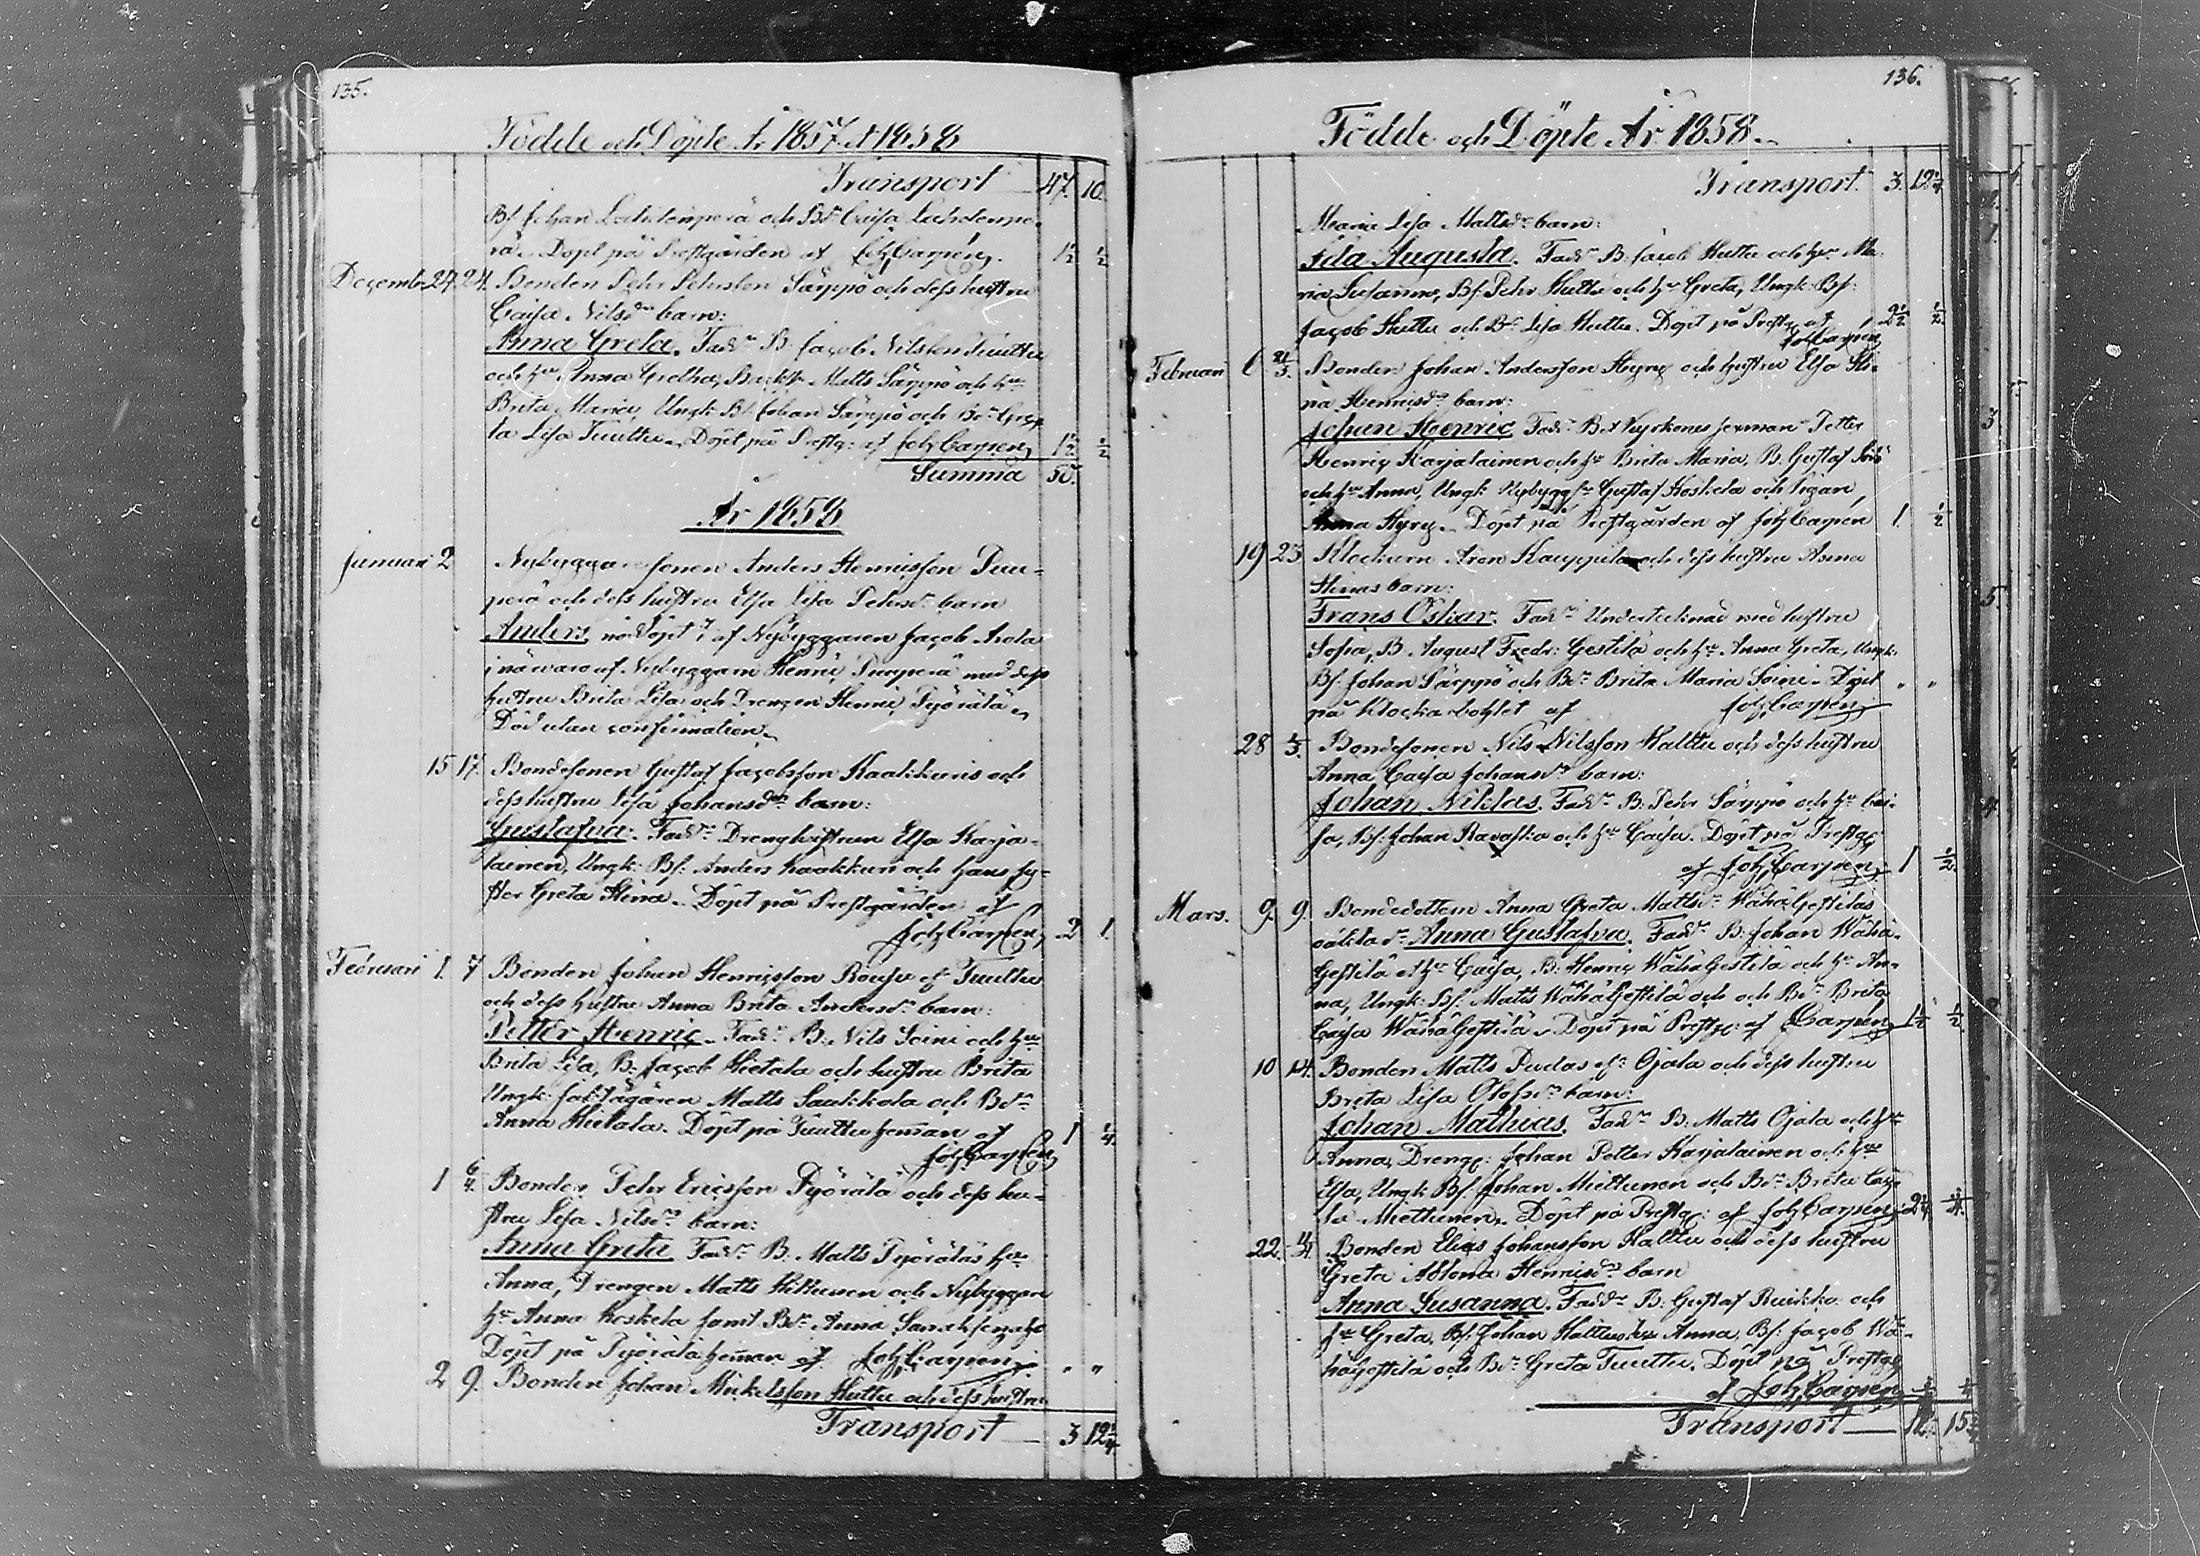 135.
Födde och Döpte År 1857 et 1858
Transport 47. 10.
Bs. Johan och Bdr Caisa
rä. Döpt på Prestgården af Joh Carpén. 1½ ½
Decemb. 24. 24. Bonden Pehr Pehrsson Särppö och dess hustru
Caisa Nilsdr barn:
Anna Greta. Faddr B. Jacob Nilsson Tuuttu
och hu Anna Gretha, Matts Särppö och hu
Brita Maria, Ungk: Bs. Johan Särppö och Bdr Gre-
ta Lisa Tuuttu. Döpt på Prestg: af Joh Carpen 1½ ½
Summa 50.
År 1858
Januari 2 Nybyggaresonen Anders Henricsson Puu-
perä och dess hustru Elsa Lisa Pehrsdr barn
Anders, nöddöpt af Nybyggaren Jacob
i närwaro af Nybyggaren Henric Puuperä med dess
hustru Brita Lisa och Drengen Henric Pyörälä.
Död utan confirmation.
15 17. Bondesonen Gustaf Jacobsson Kaakkuris och
dess hustru Lisa Johansdr barn:
Gustafva. Faddr Drenghustrun Elsa Karja-
lainen, Ungk: Bs: Anders Kaakkuri och hans sy-
ster Greta Stina. Döpt på Prestgården af
Joh Carpen, 2 1.
Februari 1. 7 Bonden Johan Henricsson Tuuttu
och dess hustru Anna Brita Andersdr barn:
Petter Henric. Faddr B. Nils Soini och hu
Brita Lisa, B. Jacob Hietala och hustru Brita
Ungk: Matts Saukkola och Bdr
Anna Hietala. Döpt på Tuuttu heman af
Joh Carpen 1 ¼
1 6/4 Bonden Pehr Ericsson Pyörälä och dess hu-
stru Lisa Nilsdr barn:
Anna Greta. Faddr B. Matts Pyöräläs hu
Anna, Drengen Matts Hiltunen och Nybyggare
hu Anna Koskela samt Bdr Anna
Döpt på Pyörälä heman af Joh Carpen. " "
2 9. Bonden Johan Mickelsson Huttu och dess hustru
Transport 3 12¼
136.
Födde och Döpte År 1858.
Transport. 3. 12¼
Maria Lisa Mattsdr barn:
Ida Augusta. Faddr B. Jacob Huttu och hu Ma-
ria Susanna, Bs. Pehr Huttu och hu Greta, Ungk: Bs:
Jacob Huttu och Bdr Lisa Huttu. Döpt på Prestg af 2½ ½
Joh Carpen
Februari 6 21/3. Bonden Johan Andersson Hyry och hustru Elsa Sti-
na Henricsdr barn:
Johan Henric. Faddr Petter
Henric Karjalainen och hu Brita Maria, B. Gustaf
och hu Anna, Ungk: Nybyggs Gustaf Koskela och Pigan
Anna Hyry. Döpt på Prestgården af Joh Carpen 1. ½
19 23 Klockarn Aron Kauppila och dess hustru Anna
Stinas barn:
Frans Oskar. Faddr Undertecknad med hustru
Sofia, B. August Fredr: Gestilä och hu Anna Greta, Ungk:
Bs: Johan Särppö och Bdr Brita Maria Soini. Döpt " "
på Klockarbohlet af Joh Carpen
28 1/3. Bondesonen Nils Nilsson Halttu och dess hustru
Anna Caisa Johansdr barn:
Johan Niklas. Faddr B: Pehr Särppö och hu Cai-
sa, Bs: Johan Ravaska och hu Caisa. Döpt på Prestg
af Joh Carpen 1 ½
Mars. 9. 9. Bondedottern Anna Greta Mattsdr WähäGestiläs
oäkta dr Anna Gustafva. Faddr B: Johan Wähä-
Gestilä o: hu Caisa, B: Henric WähäGestilä och hu An-
na, Ungk: Bs: Matts WähäGestilä och och Bdr Brita
Caisa WähäGestilä. Döpt på Prestg: af Carpen 1½ ½
10 14. Bonden Matts Pudas o: Ojala och dess hustru
Brita Lisa Olofsdr barn:
Johan Mathias. Faddr B: Matts Ojala och hu
Anna, Dreng: Johan Petter Karjalainen och hu
Elsa, Ungk: Bs: Johan Miettunen och Bdr Brita Caj-
sa Miettunen. Döpt på Prestg: af Joh Carpen 2¼ ¼
22. 4/4. Bonden Elias Johansson Halttu och dess hustru
Greta Ablona Henricsdr barn
Anna Susanna. Faddr B: Gustaf Ruikka och
hu Greta, Bs: Johan Halttu o: hu Anna, Bs: Jacob Wä-
häGestilä och Bdr Greta Tuuttu. Döpt på Prestg
af Joh Carpen
Transport 15